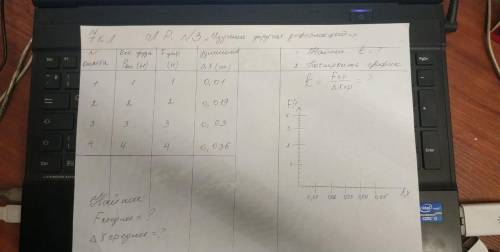 7 кл Л. Р. №3 „Изучение упругих деформаций"
N опыта Вес груза Pгр (н) Fупр (н) Удлинение Δx (м)
1 1 1 0,01
2 2 2 0,019
3 3 3 0,03
4 4 4 0,036
Найти
Fсреднее = ?
Δx среднее = ?
1. Найти k = ?
2. Построить график
k = Fср / Δxср = ?
F,н